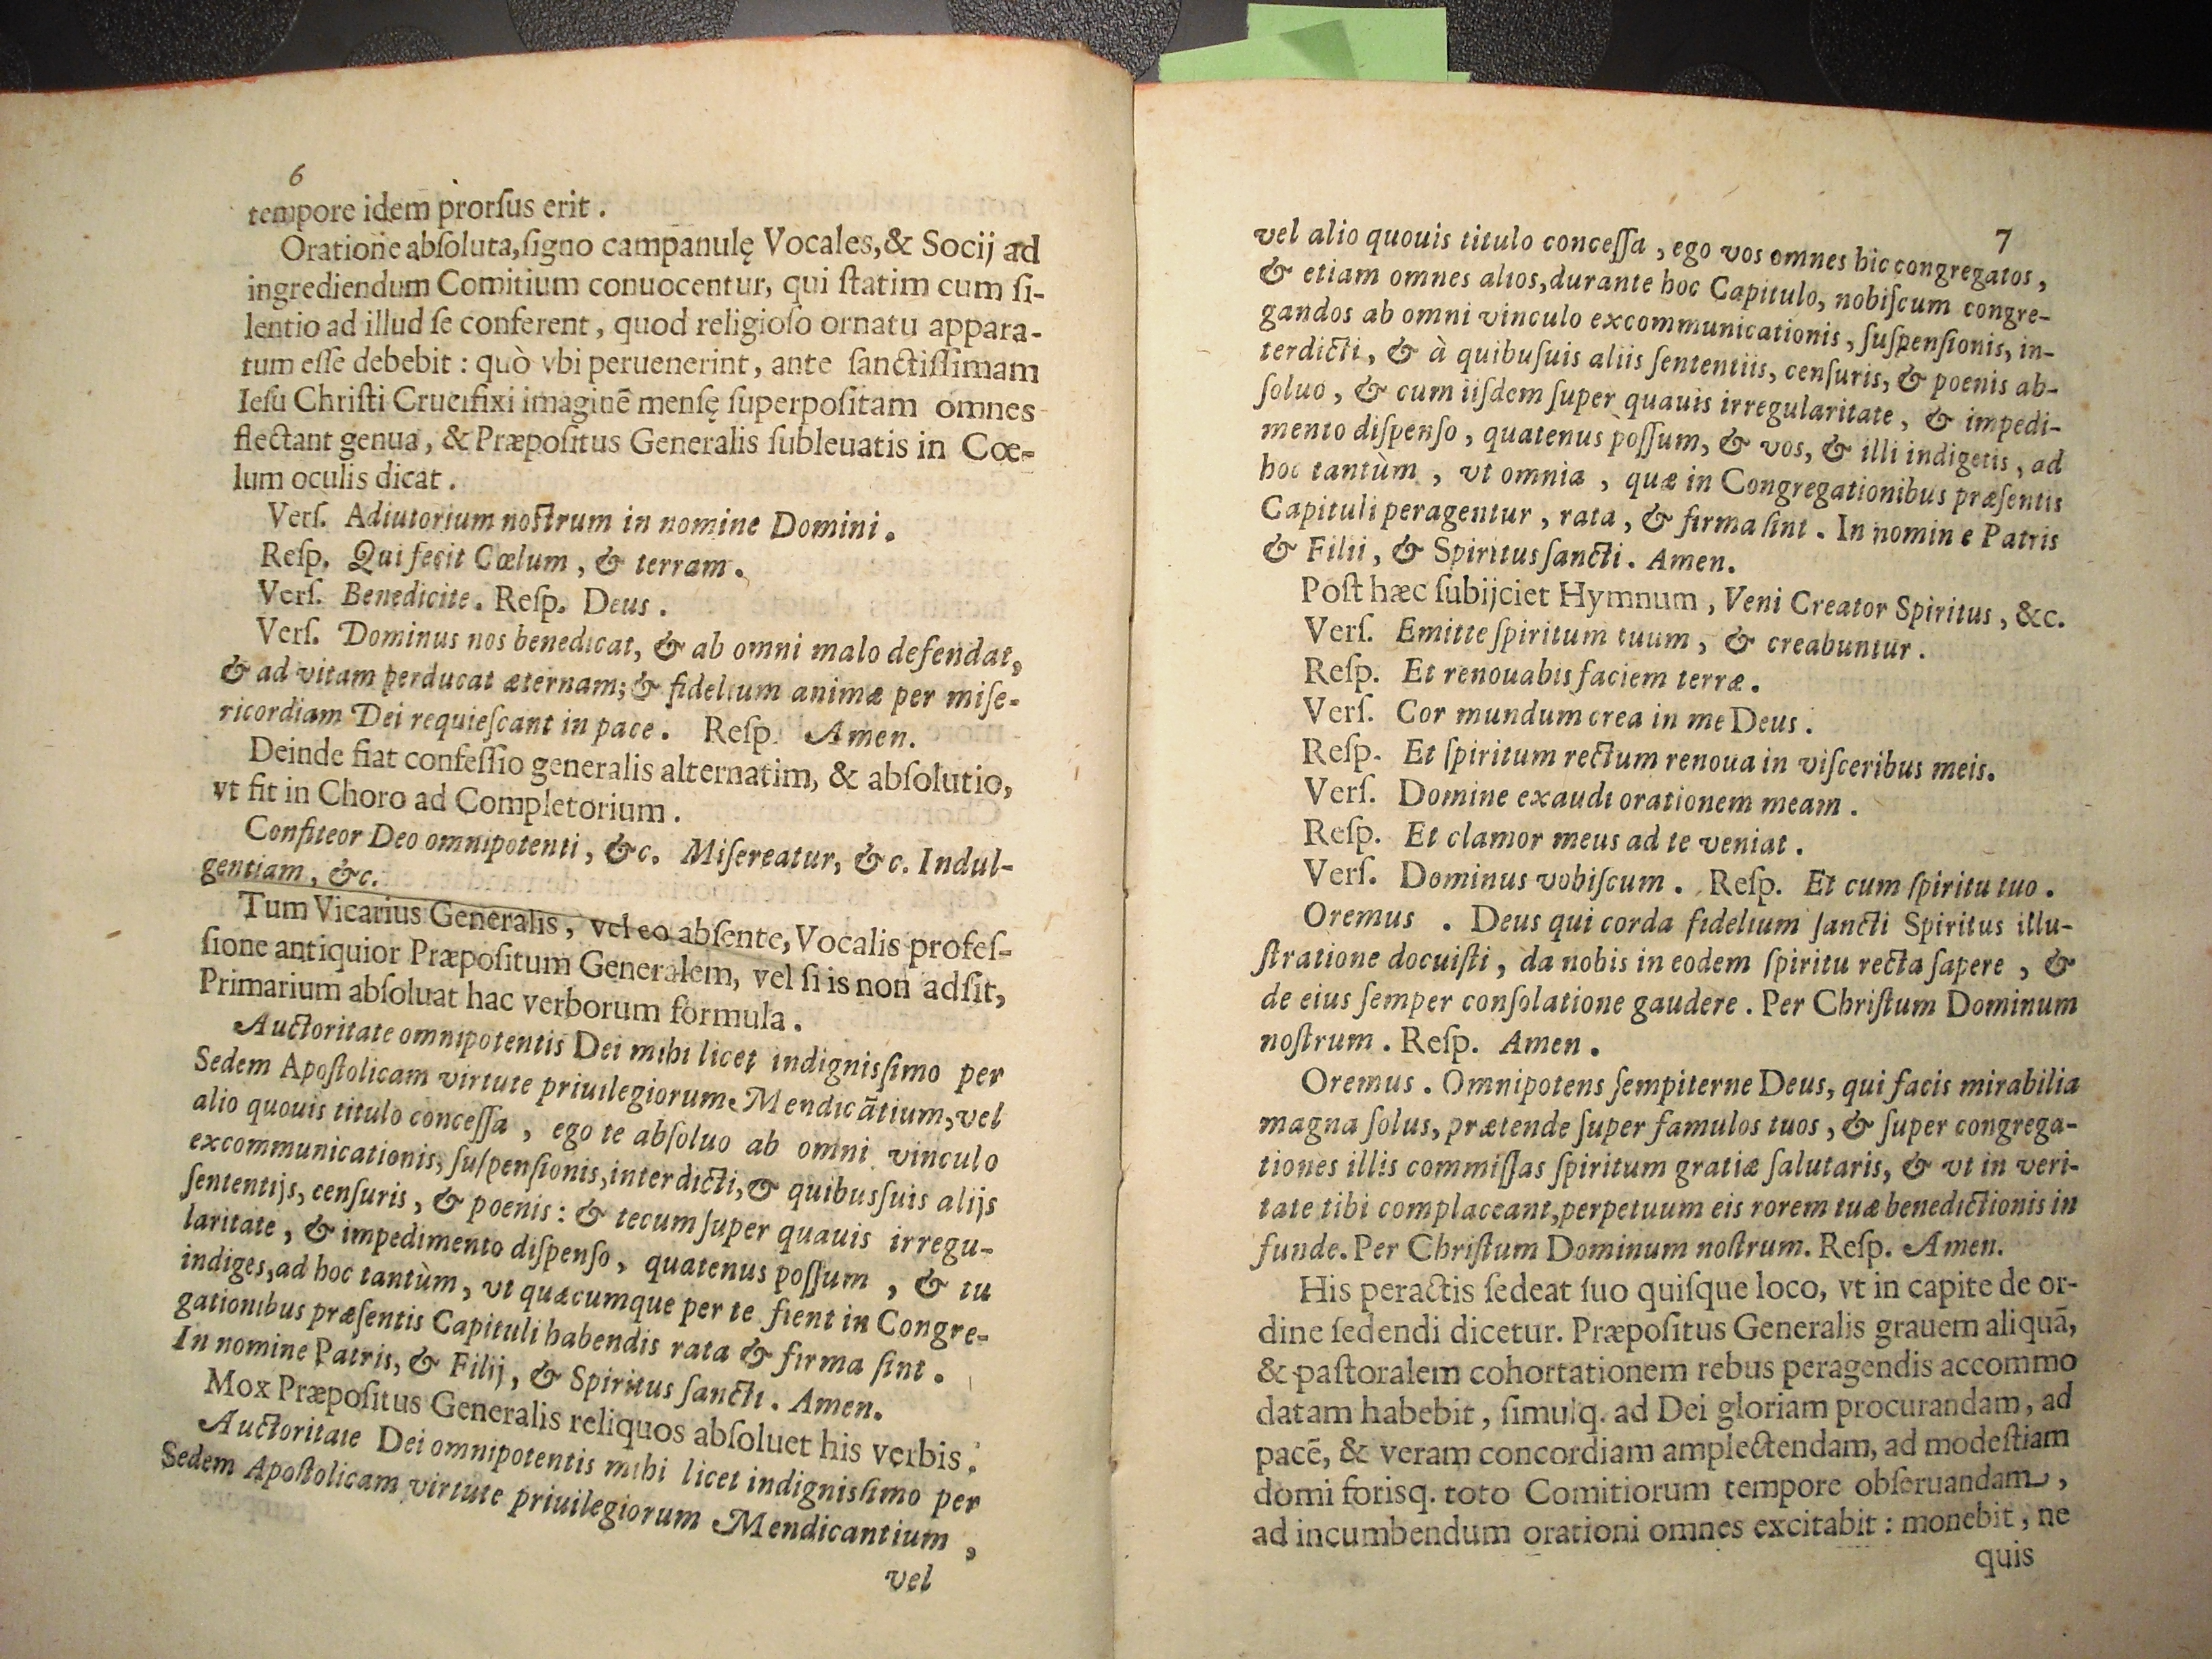 6
tempore idem prorſus erit .
Oratione abſoluta, ſigno campanulę Vocales, & Socij ad
ingrediendum Comitium conuocentur, qui ſtatim cum ſi-
lentio ad illud ſe conferent , quod religioſo ornatu appara-
tum eſſe debebit : quò vbi peruenerint , ante ſanctiſſimam
Ieſu Chriſti Crucifixi imaginē menſę ſuperpoſitam omnes
flectant genua , & Præpoſitus Generalis ſubleuatis in Cœ-
lum oculis dicat .
Verſ. Adiutorium noſtrum in nomine Domini .
Reſp. Qui fecit Cœlum , & terram .
Verſ. Benedicite . Reſp. Deus .
Verſ. Dominus nos benedicat, & ab omni malo defendat,
& ad vitam perducat æternam; & fidelium animæ per miſe-
ricordiam Dei requieſcant in pace . Reſp. Amen.
Deinde fiat confeſſio generalis alternatim, & abſolutio,
vt fit in Choro ad Completorium .
Confiteor Deo omnipotenti , &c. Miſereatur, &c. Indul-
gentiam , &c.
Tum Vicarius Generalis , vel eo abſente, Vocalis profeſ-
ſione antiquior Præpoſitum Generalem, vel ſi is non adſit,
Primarium abſoluat hac verborum formula .
Auctoritate omnipotentis Dei mihi licet indigniſſimo per
Sedem Apoſtolicam virtute priuilegiorum Mendicātium, vel
alio quouis titulo conceſſa , ego te abſoluo ab omni vinculo
excommunicationis, ſuſpenſionis, interdicti, & quibusſuis alijs
ſententijs, cenſuris , & poenis : & tecum ſuper quauis irregu-
laritate , & impedimento diſpenſo , quatenus poſſum , & tu
indiges, ad hoc tantùm , vt quæcumque per te fient in Congre-
gationibus præſentis Capituli habendis rata & firma ſint .
In nomine Patris, & Filij , & Spiritus ſancti . Amen.
Mox Præpoſitus Generalis reliquos abſoluet his verbis .
Auctoritate Dei omnipotentis mihi licet indigniſſimo per
Sedem Apoſtolicam virtute priuilegiorum Mendicantium ,
vel
7
vel alio quouis titulo conceſſa , ego vos omnes hic congregatos ,
& etiam omnes alios, durante hoc Capitulo, nobiſcum congre-
gandos ab omni vinculo excommunicationis , ſuſpenſionis, in-
terdicti , & à quibuſuis aliis ſententiis, cenſuris, & poenis ab-
ſoluo , & cum iiſdem ſuper quauis irregularitate , & impedi-
mento diſpenſo , quatenus poſſum, & vos, & illi indigetis , ad
hoc tantùm , vt omnia , quæ in Congregationibus præſentis
Capituli peragentur , rata , & firma ſint . In nomin e Patris
& Filii , & Spiritus ſancti . Amen.
Poſt hæc ſubijciet Hymnum , Veni Creator Spiritus , &c.
Verſ. Emitte ſpiritum tuum , & creabuntur .
Reſp. Et renouabis faciem terræ .
Verſ. Cor mundum crea in me Deus .
Reſp. Et ſpiritum rectum renoua in viſceribus meis.
Verſ. Domine exaudi orationem meam .
Reſp. Et clamor meus ad te veniat .
Verſ. Dominus vobiſcum . Reſp. Et cum ſpiritu tuo .
Oremus . Deus qui corda fidelium ſancti Spiritus illu-
ſtratione docuiſti , da nobis in eodem ſpiritu recta ſapere , &
de eius ſemper conſolatione gaudere . Per Chriſtum Dominum
noſtrum . Reſp. Amen .
Oremus . Omnipotens ſempiterne Deus, qui facis mirabilia
magna ſolus, prætende ſuper famulos tuos , & ſuper congrega-
tiones illis commiſſas ſpiritum gratiæ ſalutaris, & vt in veri-
tate tibi complaceant, perpetuum eis rorem tuæ benedictionis in
funde. Per Chriſtum Dominum noſtrum. Reſp. Amen.
His peractis ſedeat ſuo quiſque loco, vt in capite de or-
dine ſedendi dicetur. Præpoſitus Generalis grauem aliquā,
& paſtoralem cohortationem rebus peragendis accommo
datam habebit , ſimulq. ad Dei gloriam procurandam , ad
pacē, & veram concordiam amplectendam, ad modeſtiam
domi foriſq. toto Comitiorum tempore obſeruandam ,
ad incumbendum orationi omnes excitabit : monebit , ne
quis